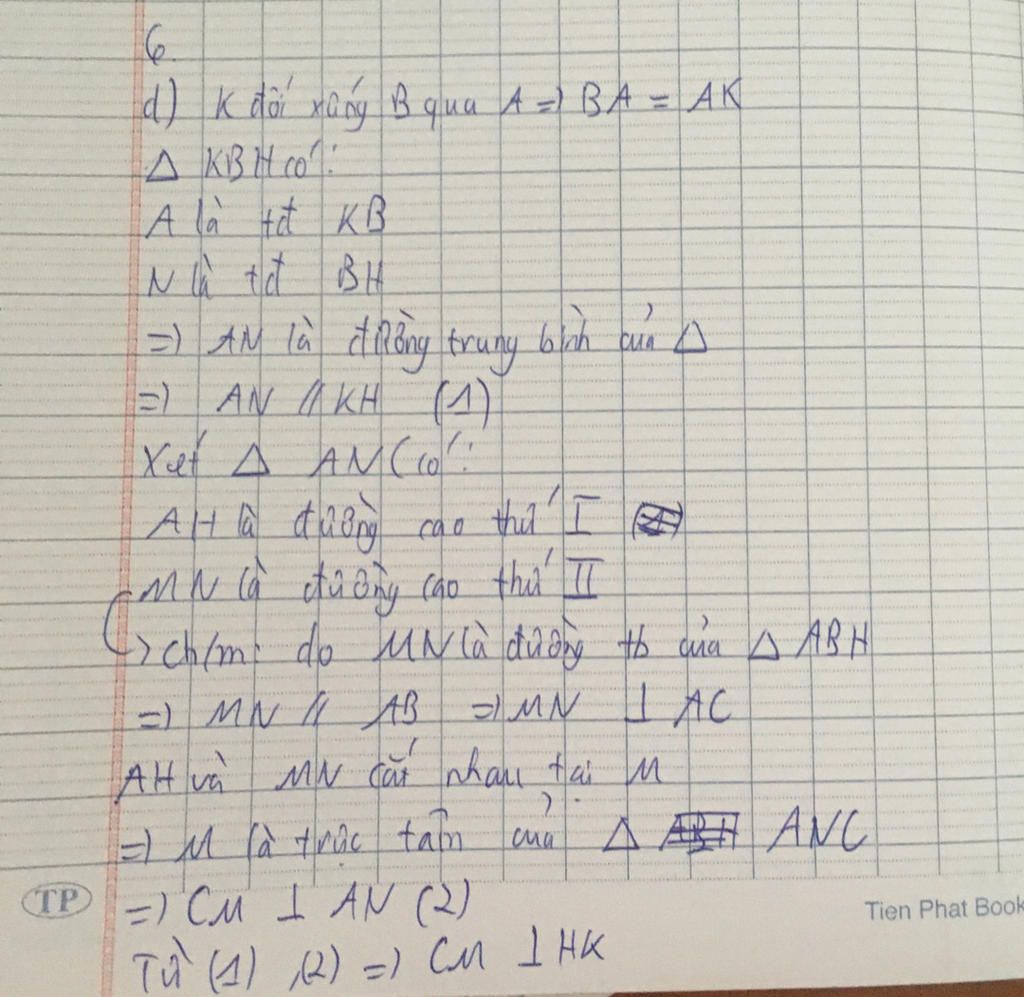 6.
d) K đối xứng B qua A => BA = AK
Δ KBH có:
A là tđ KB
N là tđ BH
=> AN là đường trung bình của Δ
=> AN // KH (1)
Xét Δ ANC có:
AH là đường cao thứ I
MN là đường cao thứ II
-> Ch/m: do MN là đường tb của Δ ABH
=> MN // AB => MN ⊥ AC
AH và MN cắt nhau tại M
=> M là trực tâm của Δ ANC
=> CM ⊥ AN (2)
Từ (1), (2) => CM ⊥ HK
TP
Tien Phat Book